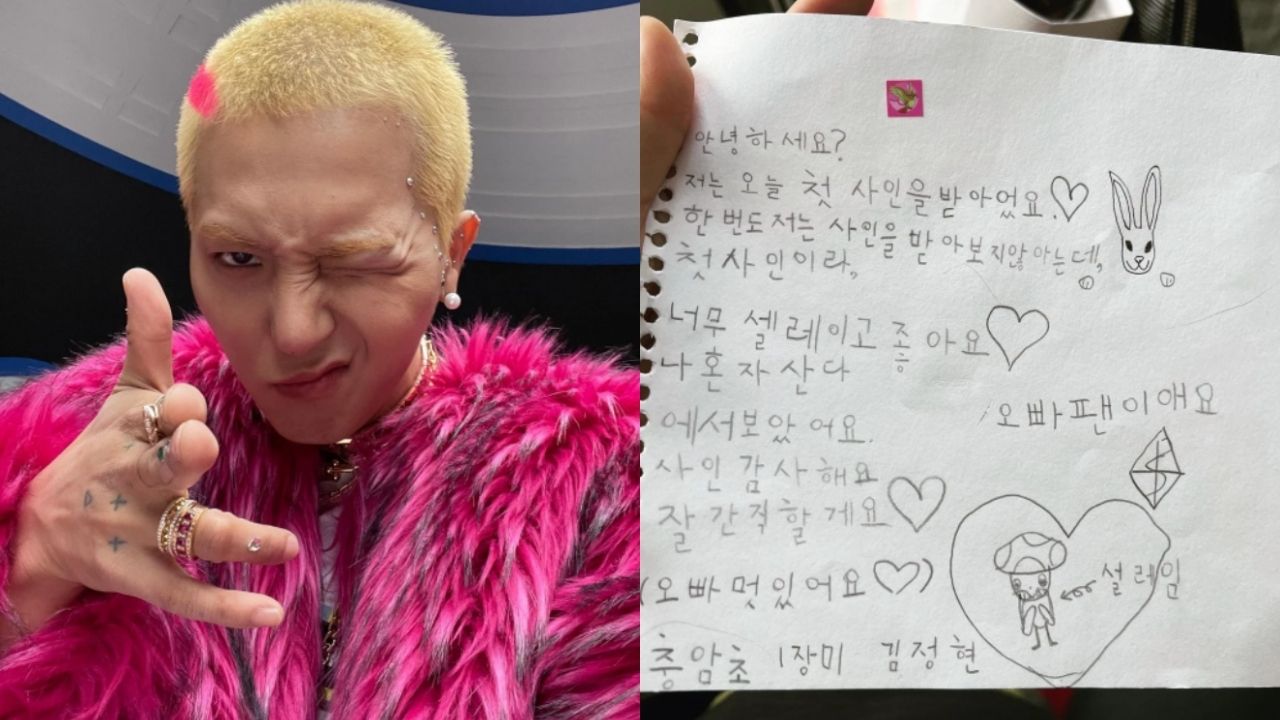 안녕하세요?
저는 오늘 첫 사인을 받아었요.
한 번도 저는 사인을 받아보지않아는데,
첫사인이라,
너무 셀레이고 좋아요
나혼자산다
에서보았어요.
오빠팬이애요
사인 감사해요
잘 간직할게요
(오빠멋있어요)
설레임
충암초 1장미 김정현